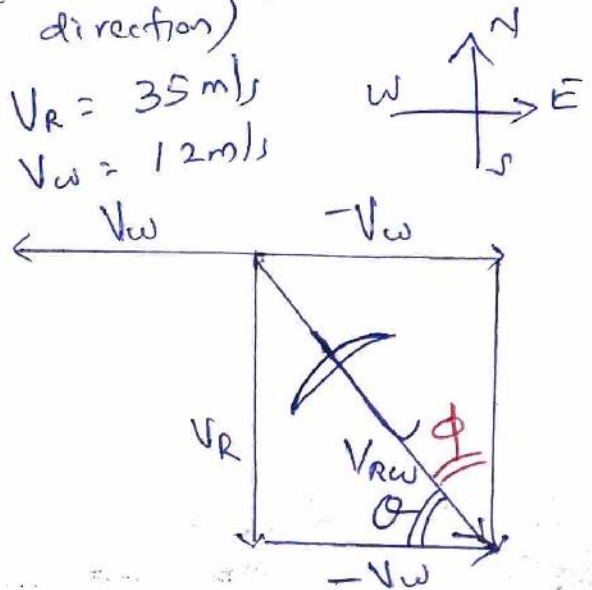 direction)
V_R = 35 m/s
V_w = 12 m/s
N
W E
S
V_w -V_w
V_R V_Rw ϕ
θ
-V_w